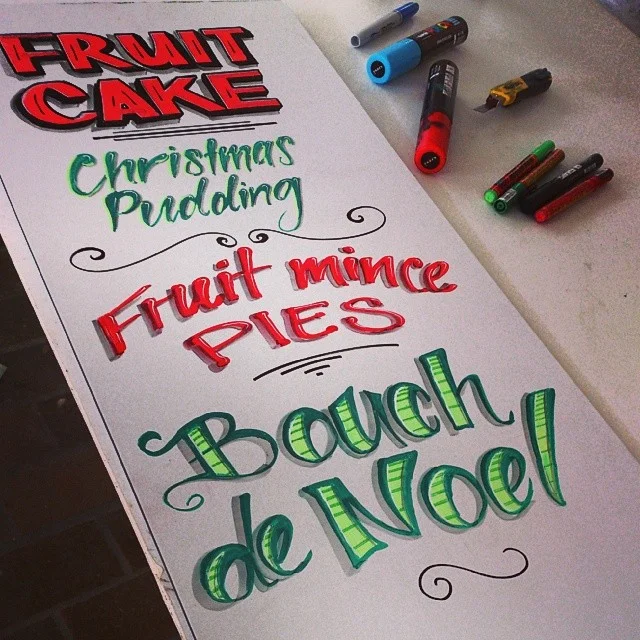 FRUIT
CAKE
Christmas
Pudding
Fruit mince
PIES
Bouch
de Noel